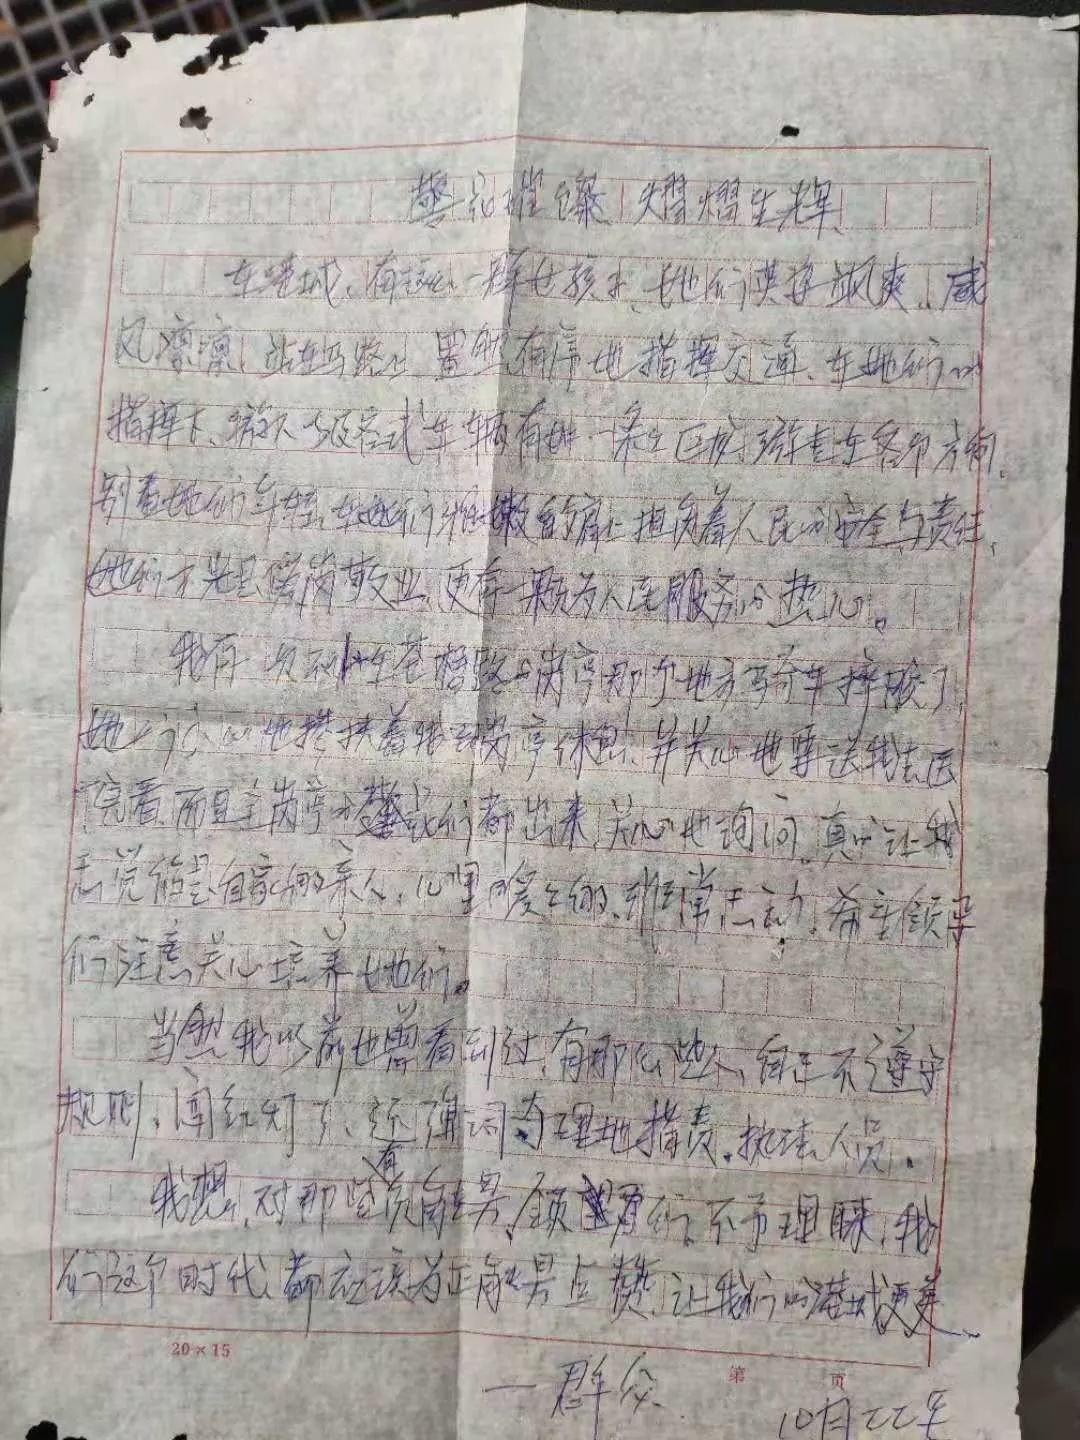 警花璀璨、熠熠生辉、
在港城、有这么一群女孩子、她们英姿飒爽、威
风凛凛、站在马路上 有序地指挥交通、在她们的
指挥下、各式车辆有 条 在各个方向、
别看她们年轻、在她们稚嫩的肩上担负着人民的安全与责任、
她们不光是爱岗敬业、更有一颗为人民服务的热心。
我有一次 在苍梧路的岗亭那个地方骑车摔跤了、
她们 地搀扶着我到岗亭休息、并关心地要送我去医
院看、而且全岗亭的警 们都出来、关心地询问、真的让我
感觉 是自家的亲人、心里暖 非常感动、希望领导
们注意关心培养她们。
当然我以前也曾看到过、有那么些人、自己不遵守
规则、闯红灯了、还强词夺理地指责、执法人员、
我想、对那些有负能量、领导们、不予理睬、我
们这个时代、都应该为正能量点赞、让我们的港城更美、
20×15
第 页
一群众
10月22号